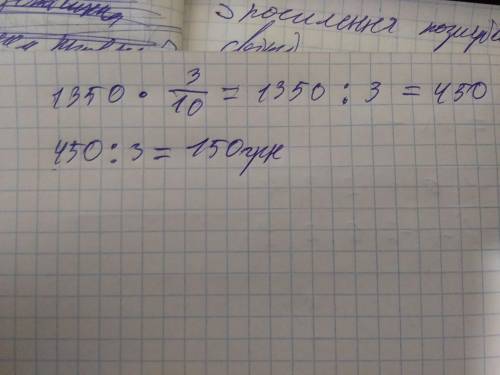 посилення позиції
1350 · 3/10 = 1350 : 3 = 450
450 : 3 = 150 грн